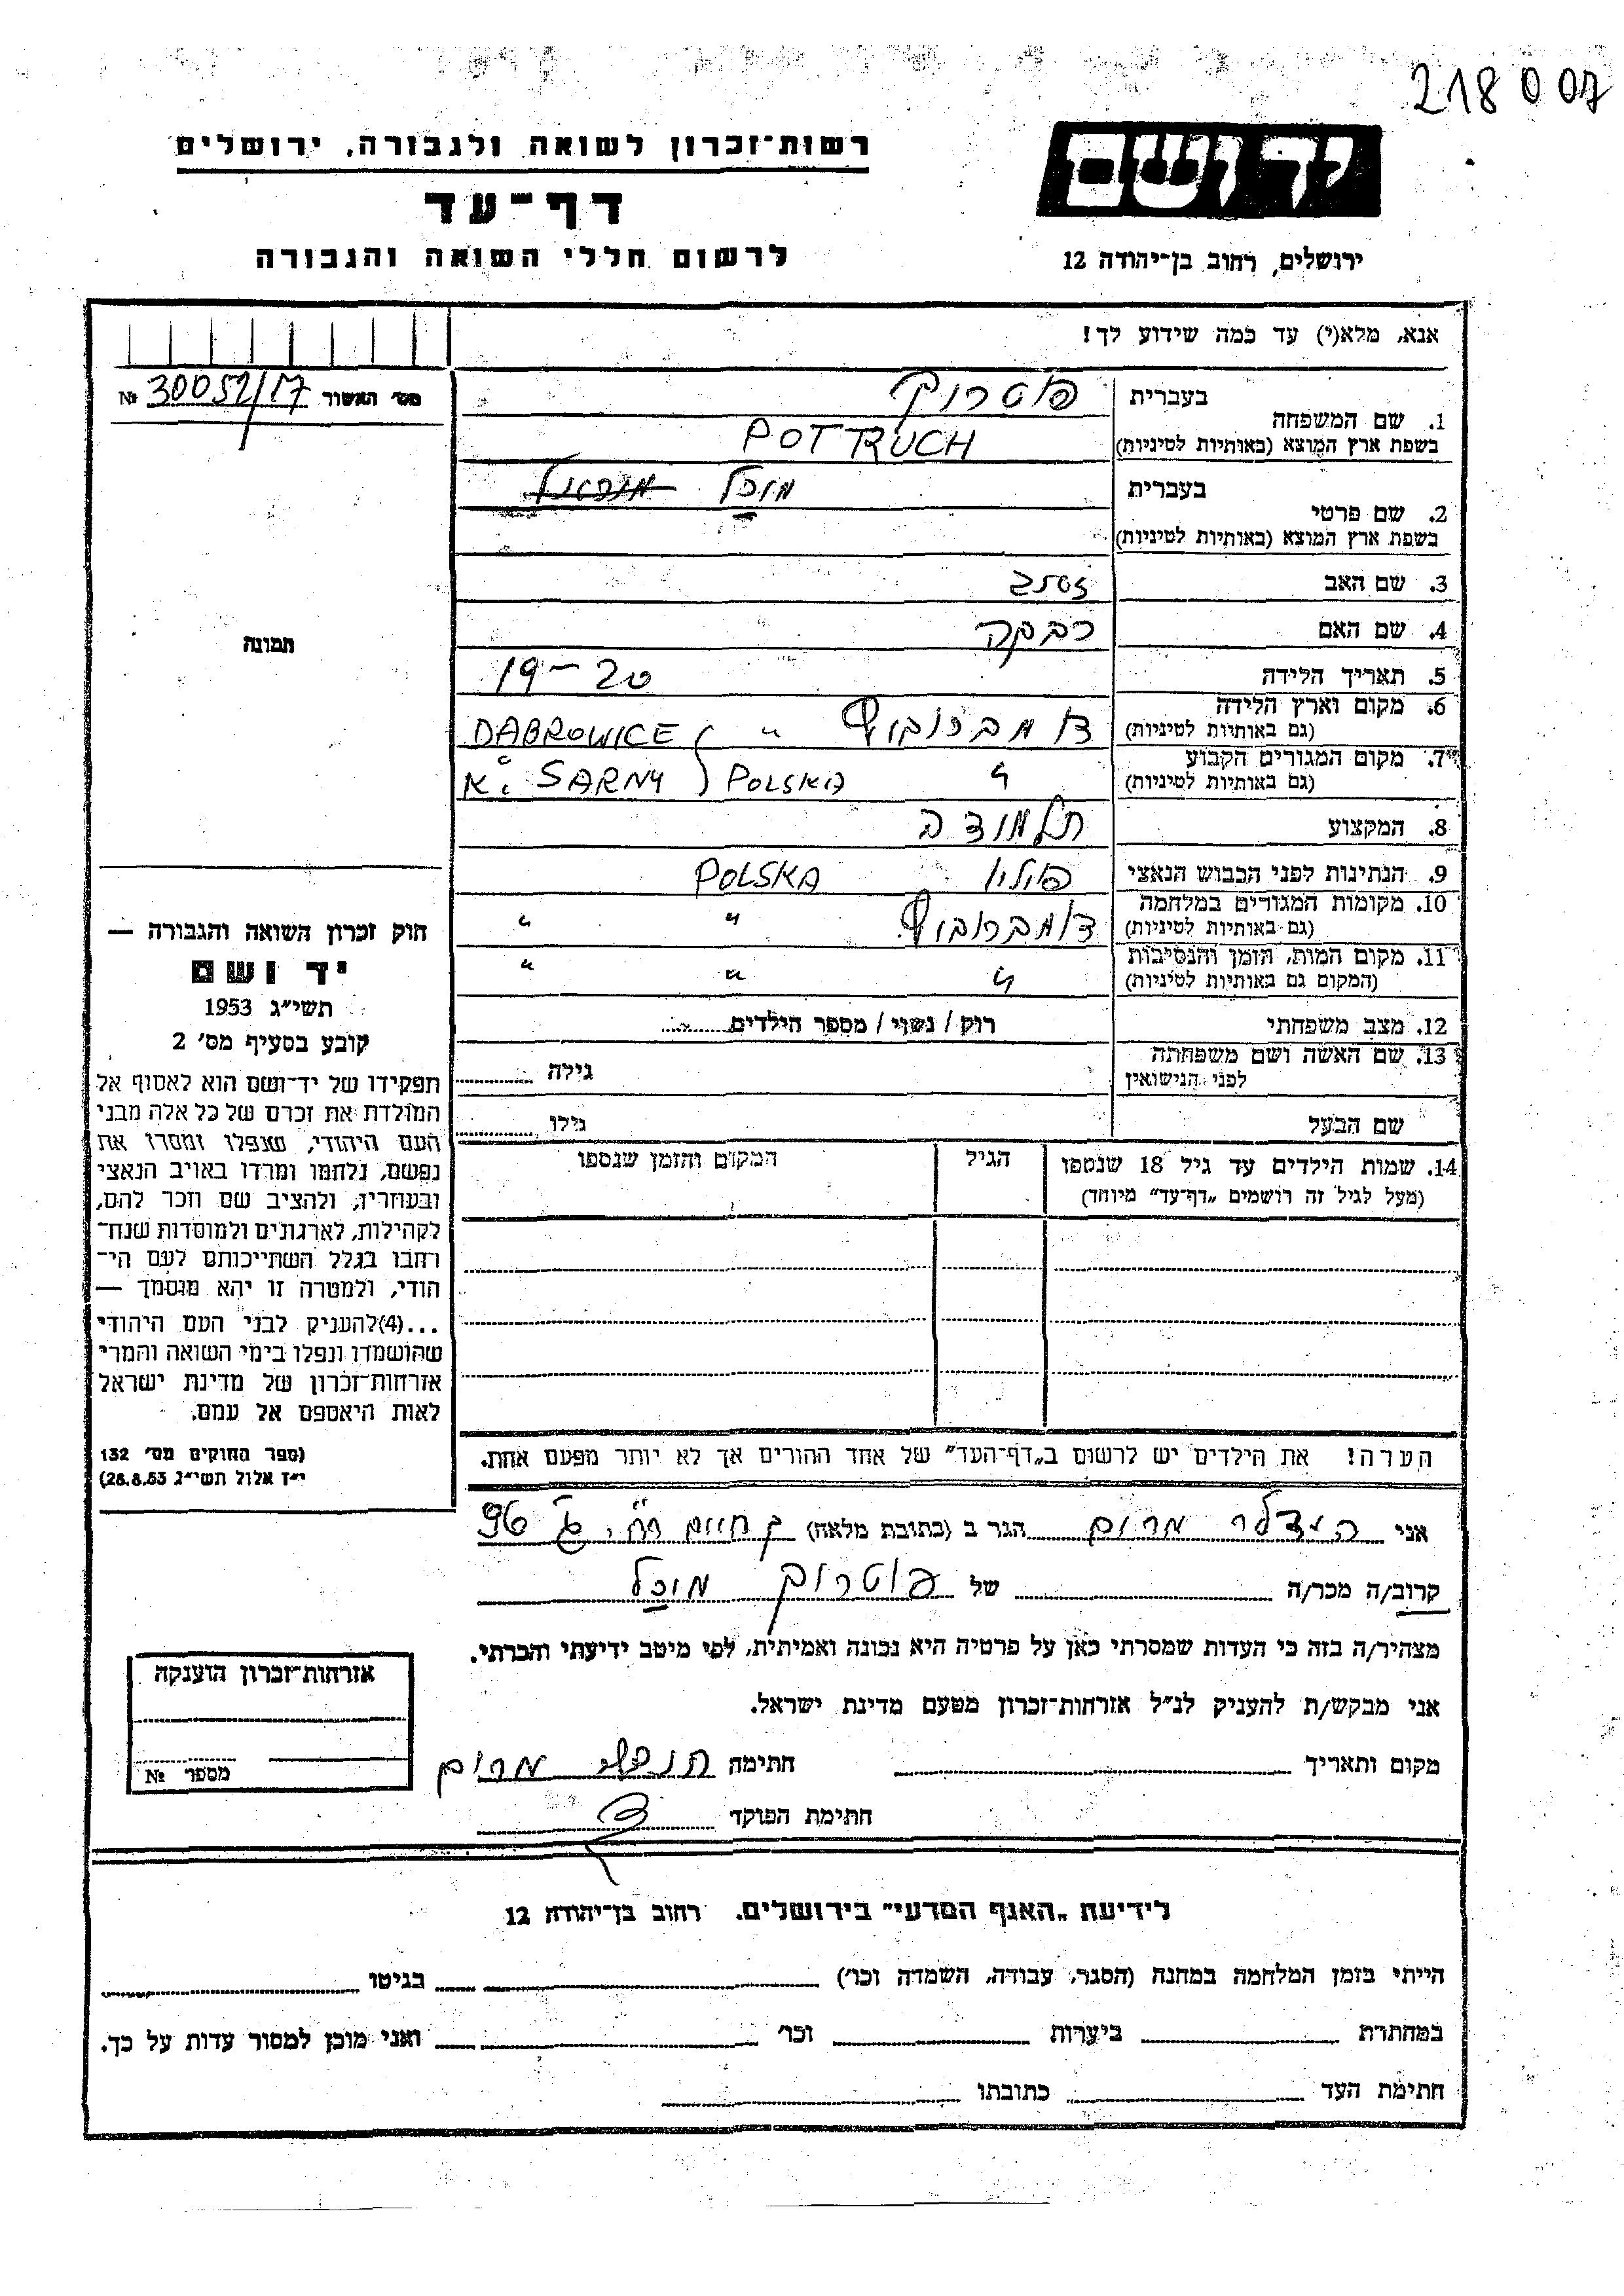 218007
רשות־זכרון לשואה ולגבורה, ירושלים
יד ושם
דף־עד
לרשום חללי השואה והגבורה
ירושלים, רחוב בן־יהודה 12
אנא, מלא(י) עד כמה שידוע לך!
מס׳ האשור № 30052/17
1. שם המשפחה
בעברית פוטרוך
בשפת ארץ המוצא (באותיות לטיניות) POTRUCH
2. שם פרטי
בעברית מיכל
בשפת ארץ המוצא (באותיות לטיניות)
3. שם האב
4. שם האם רבקה
5. תאריך הלידה 19-20
6. מקום וארץ הלידה
(גם באותיות לטיניות) דומברוביץ " DABROWICE
7. מקום המגורים הקבוע
(גם באותיות לטיניות) " POLSKA SARNY .K
8. המקצוע תלמידה
9. הנתינות לפני הכבוש הנאצי פולין POLSKA
10. מקומות המגורים במלחמה
(גם באותיות לטיניות) דומברוביץ " "
11. מקום המות, הזמן והנסיבות
(המקום גם באותיות לטיניות) " " "
12. מצב משפחתי רוק / נשוי / מספר הילדים
13. שם האשה ושם משפחתה
לפני הנישואין גילה
שם הבעל גילו
14. שמות הילדים עד גיל 18 שנספו
(מעל לגיל זה רושמים „דף־עד” מיוחד)
הגיל
המקום והזמן שנספו
תמונה
חוק זכרון השואה והגבורה —
יד ושם
תשי״ג 1953
קובע בסעיף מס׳ 2
תפקידו של יד־ושם הוא לאסוף אל
המולדת את זכרם של כל אלה מבני
העם היהודי, שנפלו ומסרו את
נפשם, נלחמו ומרדו באויב הנאצי
ובעוזריו, ולהציב שם וזכר להם,
לקהילות, לארגונים ולמוסדות שנח־
רבו בגלל השתייכותם לעם הי־
הודי, ולמטרה זו יהא מוסמך —
...(4)להעניק לבני העם היהודי
שהושמדו ונפלו בימי השואה והמרי
אזרחות־זכרון של מדינת ישראל
לאות היאספם אל עמם.
(ספר החוקים מס׳ 132
י״ז אלול תשי״ג 28.8.53)
הערה! את הילדים יש לרשום ב„דף־העד” של אחד ההורים אך לא יותר מפעם אחת.
אני מרום הגר ב (כתובת מלאה) 96
קרוב/ה מכר/ה של פוטרוך מיכל
מצהיר/ה בזה כי העדות שמסרתי כאן על פרטיה היא נכונה ואמיתית, לפי מיטב ידיעתי והכרתי.
אני מבקש/ת להעניק לנ״ל אזרחות־זכרון מטעם מדינת ישראל.
מקום ותאריך חתימה מרום
חתימת הפוקד
אזרחות־זכרון הוענקה
מספר №
לידיעת „האגף המדעי” בירושלים. רחוב בן־יהודה 12
הייתי בזמן המלחמה במחנה (הסגר, עבודה, השמדה וכו׳) בגיטו
במחתרת ביערות וכו׳ ואני מוכן למסור עדות על כך.
חתימת העד כתובתו